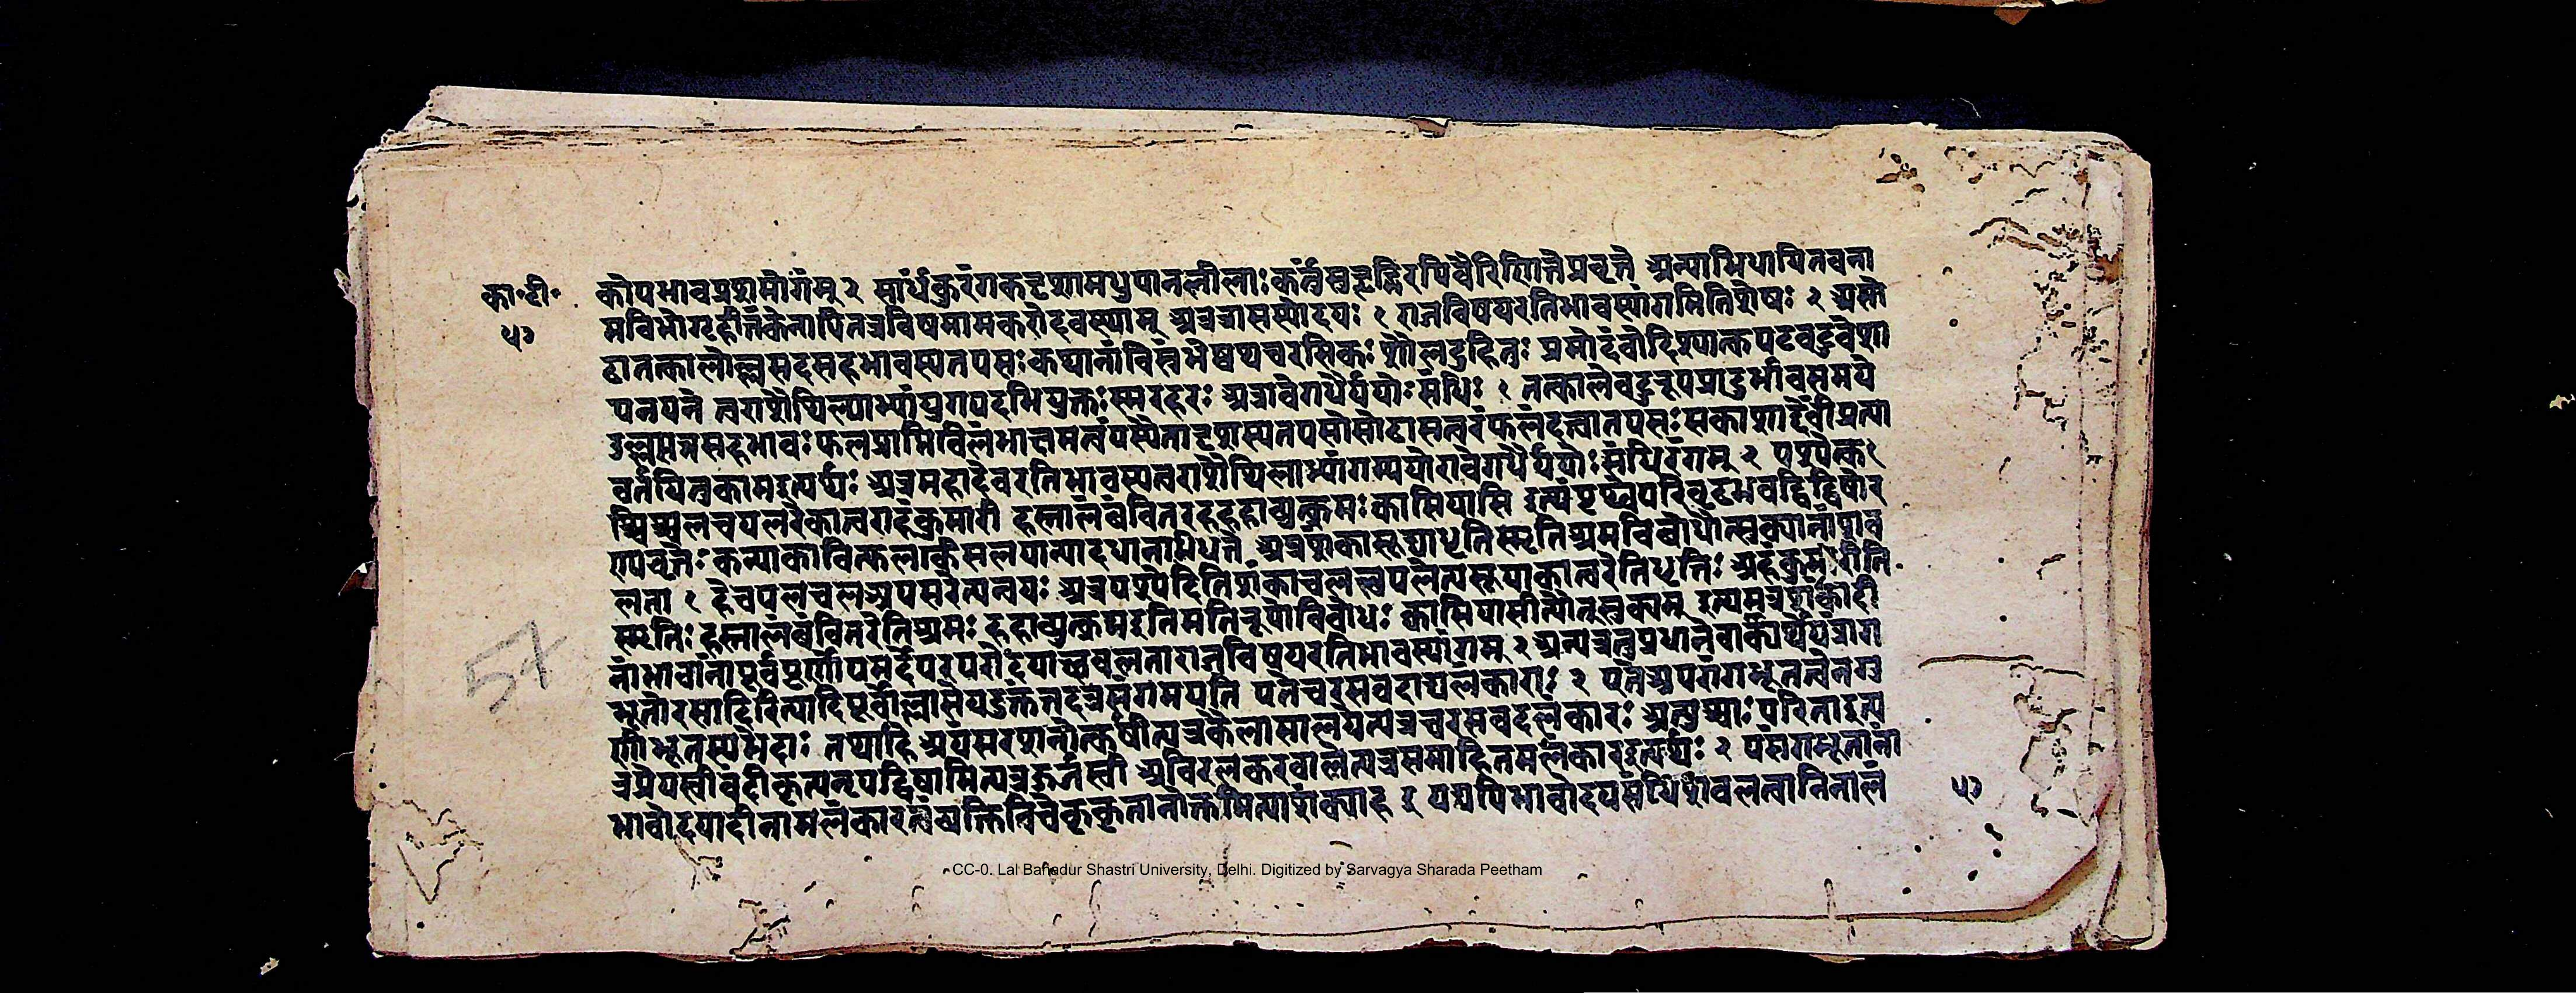 का॰टी॰
५७
कोपभावप्रशमोगंम् २ साधंकुरंगकदृशामधुपानलीलाःकर्त्तुंसुहृद्भिरपिवैरिणितेप्रवृत्ते अन्याभिधायितवना
मविभोगृहीतंकेनापितत्रविषमामकरोदवस्थाम् अत्रत्रासस्योदयः १ राजविषयरतिभावस्यांगमितिशेषः २ असो
ढातत्कालोल्लसदसहभावस्यतपसःकथानांविस्रंभेष्वथचरसिकः शैलदुहितुः प्रमोदंवोदिश्यात्कपटवटुवेशा
पनयने त्वराशैथिल्याभ्यांयुगपदभियुक्तःस्मरहरः अत्रावेगधैर्ययोःसंधिः १ तत्कालेवटुरूपप्रादुर्भावसमये
उल्लसन्नसहभावः फलप्राप्तिविलंभाक्षमत्वंयस्यैतादृशस्यतपसोसोढासत्वरंफलंदत्वातपसःसकाशाद्देवींप्रत्या
वर्तयितुकामइत्यर्थः अत्रमहादेवरतिभावस्यत्वराशैथिलाभ्यांगम्ययोरावेगधैर्ययोःसंधिरंगम् २ पश्येत्क१
श्चिच्चलचपलरेकात्वराहंकुमारी हस्तालंबंवितरहहहाव्युत्क्रमःक्वासियासि इत्थंपृथ्वीपरिवृढभवद्विद्विषोर
ण्यवृत्तेःकन्याकंचित्फलकिसलयान्याददानाभिधत्ते अत्रशंकासूयाधृतिस्मृतिश्रमविबोधौत्सुक्यानांशव
लता १ हेचपलचलअपसरेत्यन्वयः अत्रपश्येदितिशंकाचलचपलेत्यसूयाकात्वरेतिधृतिः अहंकुमारीति
स्मृतिः हस्तालंबंवितरेतिश्रमः हहाव्युत्क्रमइतिमतिरूपोविबोधः क्वासियासीत्यौत्सुक्यम् इत्यमत्रशंकादी
नांभावानांपूर्वपूर्वोपमर्देपरपरोदयाच्छवलताराजविषयरतिभावस्यांगम् २ अन्यत्रतुप्रधानेवाक्यार्थेयत्रांग
भूतोरसादिरित्यादिपूर्वोल्लासेयदुक्तंतदत्रसंगमयति एतेचरसवदाद्यलंकाराः २ एतेअपरांगभूतत्वेनगु
णीभूतस्यभेदाः तथाहि अयंसरशनोत्कर्षीत्यत्रकैलासालयेत्यत्रचरसवदलंकारः अत्युच्चाःपरितइत्य
त्रप्रेयस्वीबंदीकृत्यनृपद्विषामित्यत्रऊर्जस्वी अविरलकरवालेत्यत्रसमाहितमलंकारइत्यर्थः २ एसगभूतानां
भावोदयादीनामलंकारत्वंव्यक्तिविवेककृतानोक्तमित्याशंक्याह इ यद्यपिभावोदयसंधिशवलत्वानिनालं
५७
57
CC-0. Lal Bahadur Shastri University, Delhi. Digitized by Sarvagya Sharada Peetham